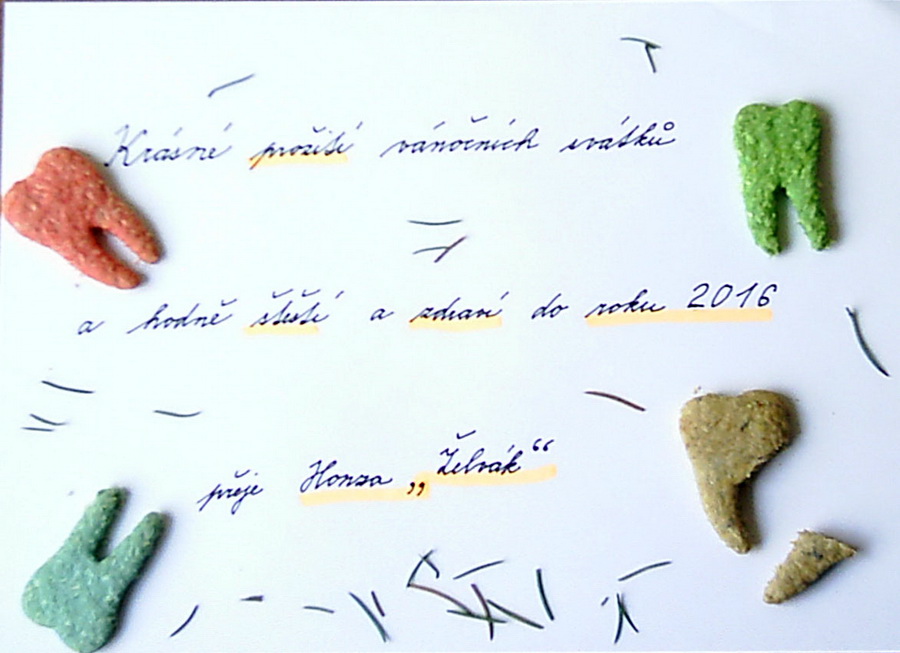 Krásné prožití vánočních svátků
a hodně štěstí a zdraví do roku 2016
přeje Honza „Želvák“